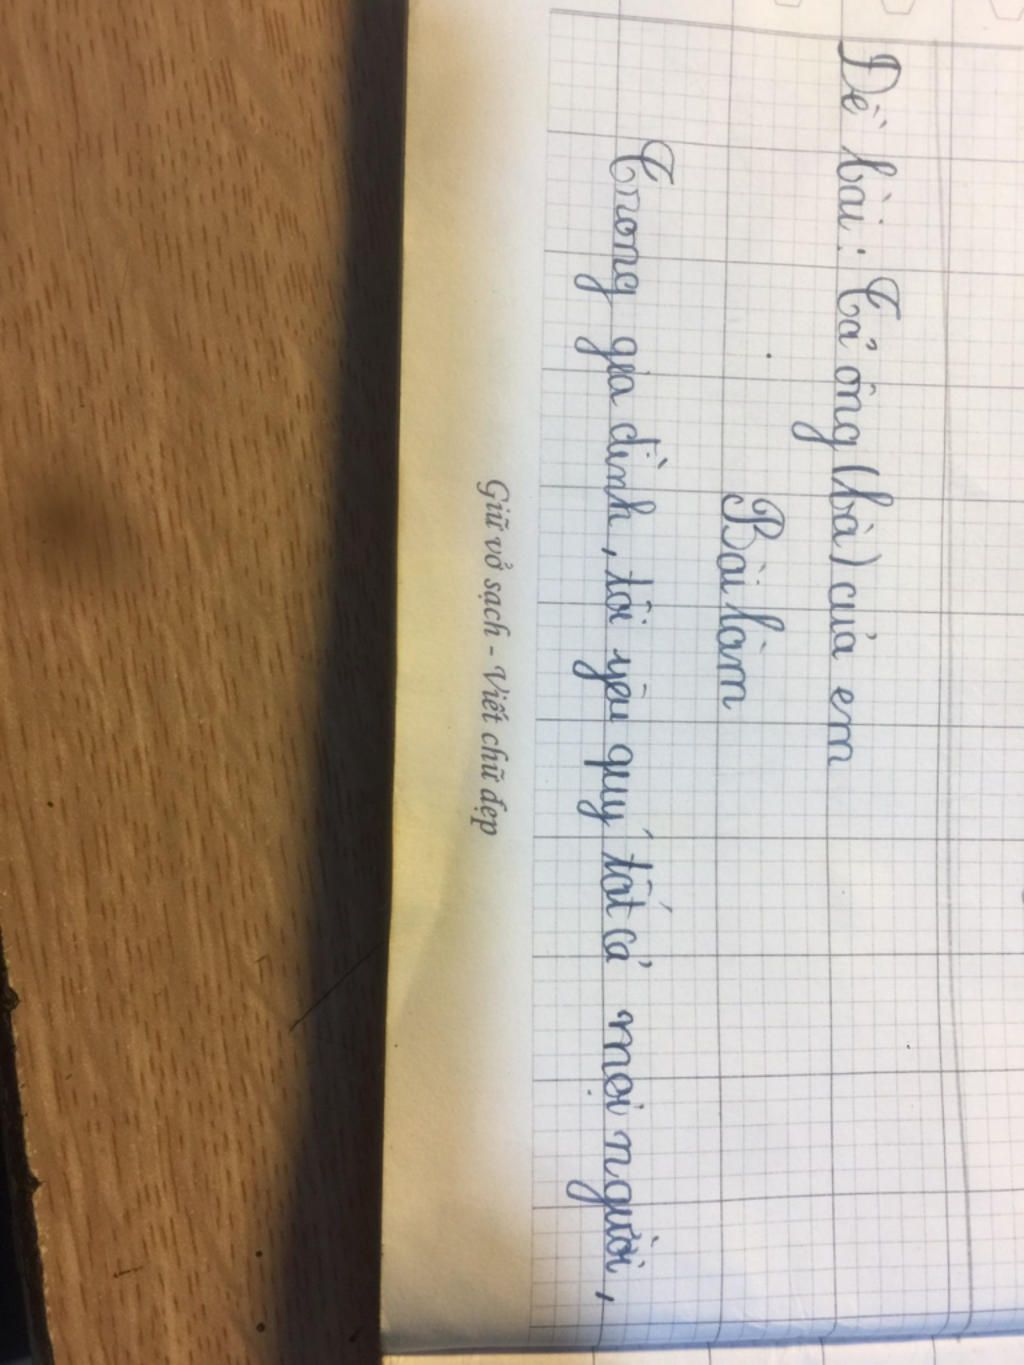 Đề bài: Tả ông (bà) của em
Bài làm
Trong gia đình, tôi yêu quý tất cả mọi người,
Giữ vở sạch - Viết chữ đẹp